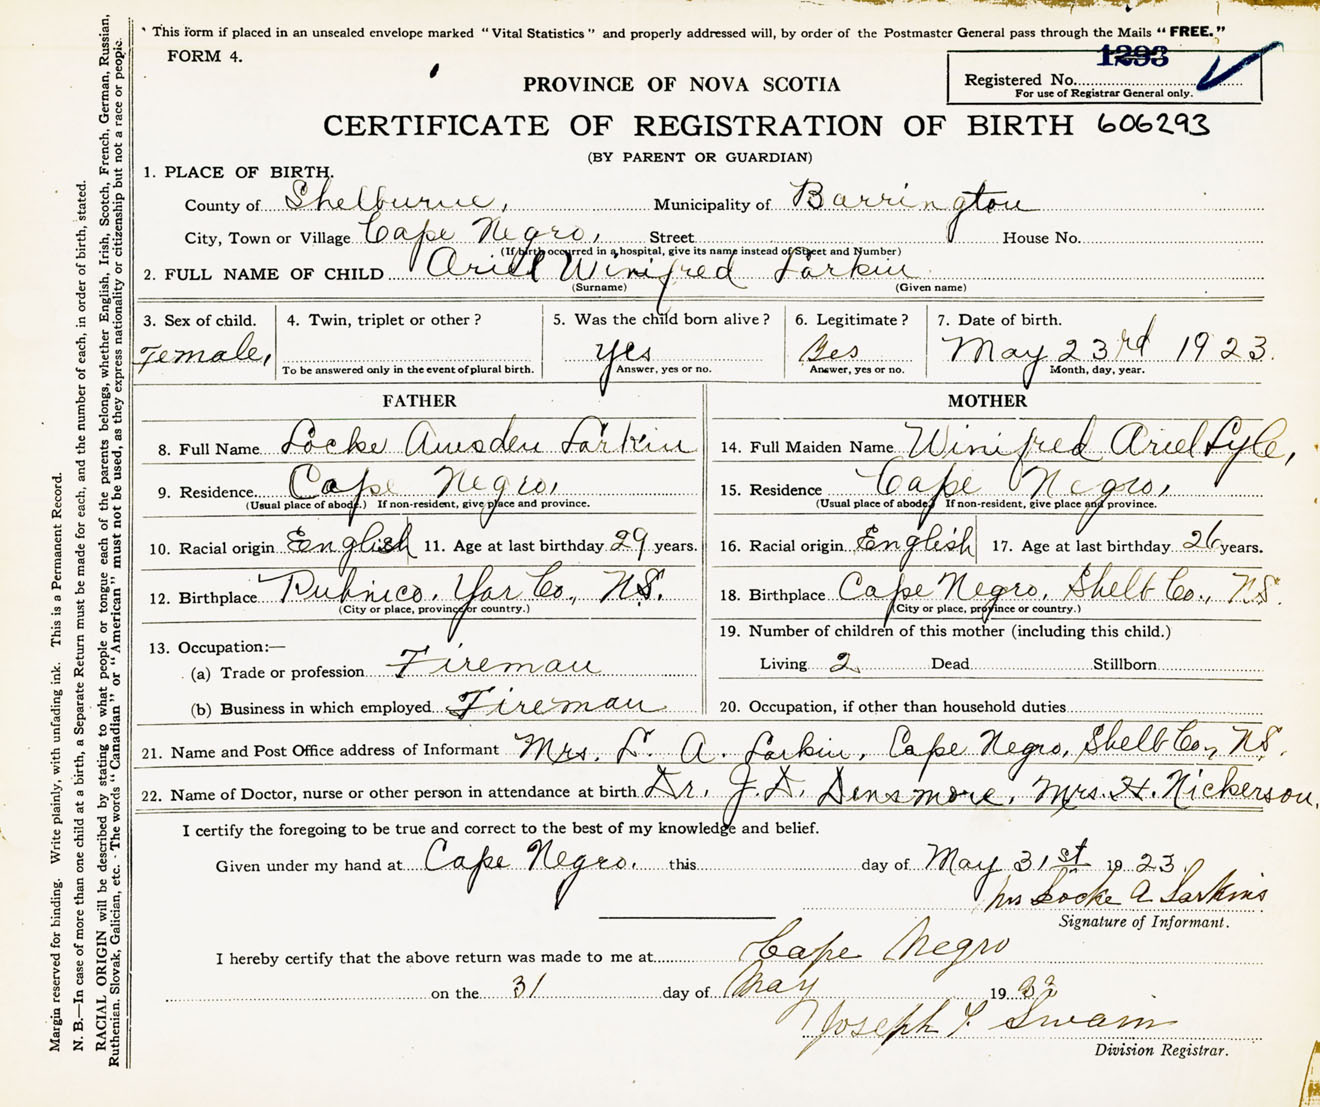 * This form if placed in an unsealed envelope marked "Vital Statistics" and properly addressed will, by order of the Postmaster General pass through the Mails "FREE."
FORM 4.
1293
Registered No.
For use of Registrar General only.
PROVINCE OF NOVA SCOTIA
CERTIFICATE OF REGISTRATION OF BIRTH 606293
(BY PARENT OR GUARDIAN)
1. PLACE OF BIRTH.
County of Shelburne, Municipality of Barrington
City, Town or Village Cape Negro, Street House No.
(If birth occurred in a hospital, give its name instead of Street and Number)
2. FULL NAME OF CHILD Ariel Winifred Larkin
(Surname) (Given name)
3. Sex of child. 4. Twin, triplet or other? 5. Was the child born alive? 6. Legitimate? 7. Date of birth.
Female, yes Yes May 23rd 1923.
To be answered only in the event of plural birth. Answer, yes or no. Answer, yes or no. Month, day, year.
FATHER MOTHER
8. Full Name Locke Amsden Larkin 14. Full Maiden Name Winifred Ariel Lyle,
9. Residence Cape Negro, 15. Residence Cape Negro,
(Usual place of abode.) If non-resident, give place and province. (Usual place of abode.) If non-resident, give place and province.
10. Racial origin English 11. Age at last birthday 29 years. 16. Racial origin English 17. Age at last birthday 26 years.
12. Birthplace Pubnico, Yar Co., N.S. 18. Birthplace Cape Negro, Shelb Co., N.S.
(City or place, province or country.) (City or place, province or country.)
13. Occupation:— 19. Number of children of this mother (including this child.)
(a) Trade or profession Fireman Living 2 Dead Stillborn
(b) Business in which employed Fireman 20. Occupation, if other than household duties
21. Name and Post Office address of Informant Mrs. L. A. Larkin, Cape Negro, Shelb Co., N.S.
22. Name of Doctor, nurse or other person in attendance at birth Dr. J.D. Densmore, Mrs. H. Nickerson.
I certify the foregoing to be true and correct to the best of my knowledge and belief.
Given under my hand at Cape Negro. this day of May 31st 1923.
Mrs Locke A Larkins
Signature of Informant.
I hereby certify that the above return was made to me at Cape Negro
on the 31 day of May 19
Joseph Swaim
Division Registrar.
Margin reserved for binding. Write plainly, with unfading ink. This is a Permanent Record.
N. B.—In case of more than one child at a birth, a Separate Return must be made for each, and the number of each, in order of birth, stated.
RACIAL ORIGIN will be described by stating to what people or tongue each of the parents belongs, whether English, Irish, Scotch, French, German, Russian,
Ruthenian, Slovak, Galician, etc. The words "Canadian" or "American" must not be used, as they express nationality or citizenship but not a race or people.